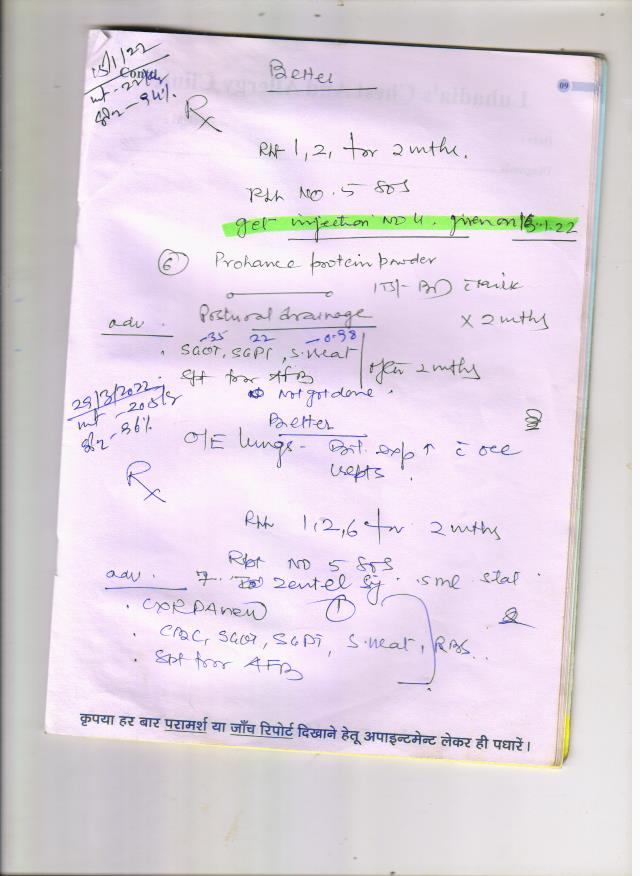 15/1/22
Cont.
Better
09
Rx
Rpt 1, 2, for 2 mths.
Rpt No. 5 SOS
get injection NO 4. given on 15.1.22
6 Prohance protein powder
1TSF BD c milk
adv. Postural drainage x 2 mths
35 22 0.98
SGOT, SGPT, S.creat
Spt for AFB
after 2 mths
Not got done.
29/3/2022
Better
O/E lungs - Bil. exp ↑ c occ
Rx
Rpt 1, 2, 6 for 2 mths
Rpt NO 5 SOS
adv. 7. Zentel Sy. 5ml stat.
CXR PA view 1
CBC, SGOT, SGPT, S.creat, RBS.
Spt for AFB
कृपया हर बार परामर्श या जाँच रिपोर्ट दिखाने हेतू अपाइन्टमेन्ट लेकर ही पधारें।